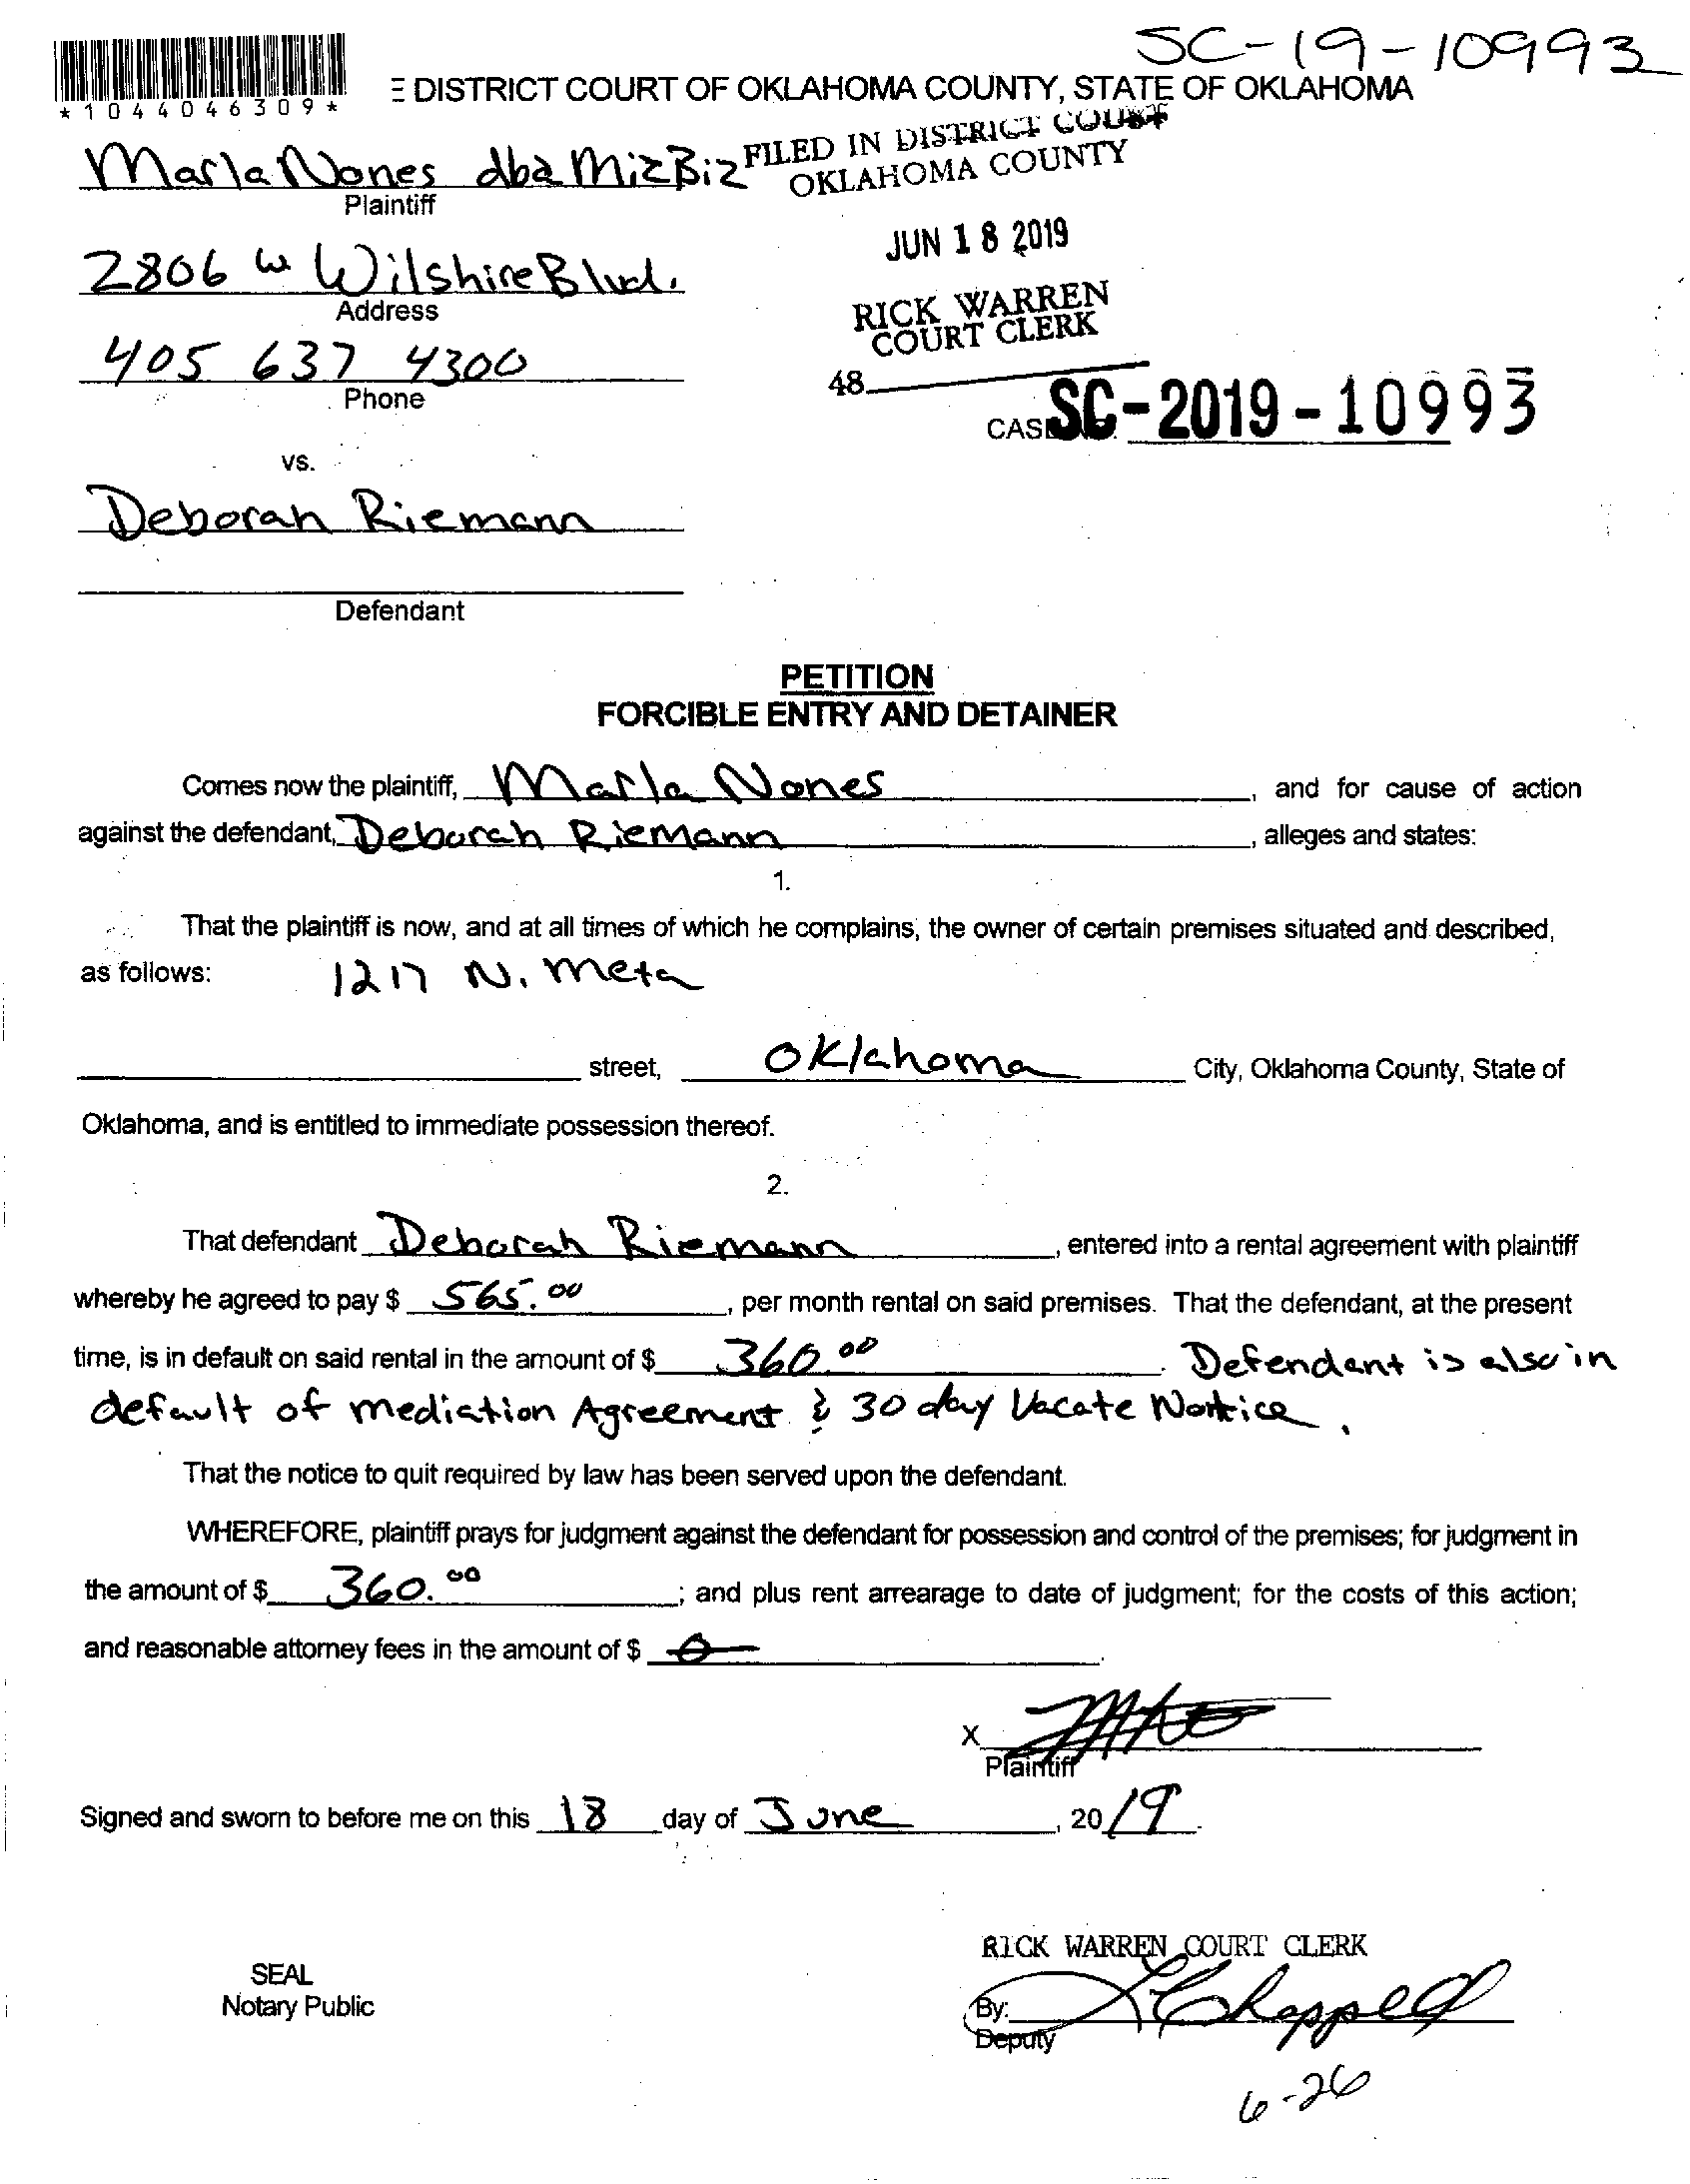 SC-19-10993
*1044046309*
E DISTRICT COURT OF OKLAHOMA COUNTY, STATE OF OKLAHOMA
FILED IN DISTRICT COURT
OKLAHOMA COUNTY
Marla Nones dba MizBiz
Plaintiff
JUN 18 2019
2806 W Wilshire Blvd.
Address
RICK WARREN
COURT CLERK
405 637 4300
Phone
48
CASE SC-2019-10993
vs.
Deborah Riemann
Defendant
PETITION
FORCIBLE ENTRY AND DETAINER
Comes now the plaintiff, Marla Nones, and for cause of action
against the defendant, Deborah Riemann, alleges and states:
1.
That the plaintiff is now, and at all times of which he complains, the owner of certain premises situated and described,
as follows: 1217 N. Meta
street, Oklahoma City, Oklahoma County, State of
Oklahoma, and is entitled to immediate possession thereof.
2.
That defendant Deborah Riemann, entered into a rental agreement with plaintiff
whereby he agreed to pay $ 565.00, per month rental on said premises. That the defendant, at the present
time, is in default on said rental in the amount of $ 360.00. Defendant is also in
default of mediation Agreement & 30 day Vacate Nortice.
That the notice to quit required by law has been served upon the defendant.
WHEREFORE, plaintiff prays for judgment against the defendant for possession and control of the premises; for judgment in
the amount of $ 360.00; and plus rent arrearage to date of judgment; for the costs of this action;
and reasonable attorney fees in the amount of $ 0.
X
Plaintiff
Signed and sworn to before me on this 18 day of June, 2019.
RICK WARREN COURT CLERK
SEAL
Notary Public
By: Chappell
Deputy
6-26